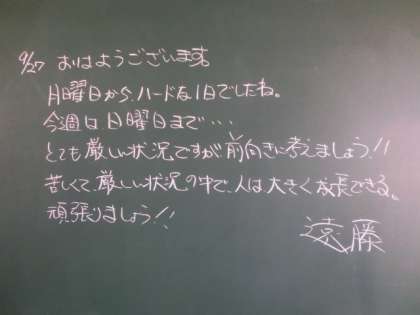 9/27 おはようございます。
月曜日から、ハードな1日でしたね。
今週は日曜日まで・・・
とても厳しい状況ですが前向きに考えましょう!!
苦しくて、厳しい状況の中で、人は大きく成長できる。
頑張りましょう!!
遠藤